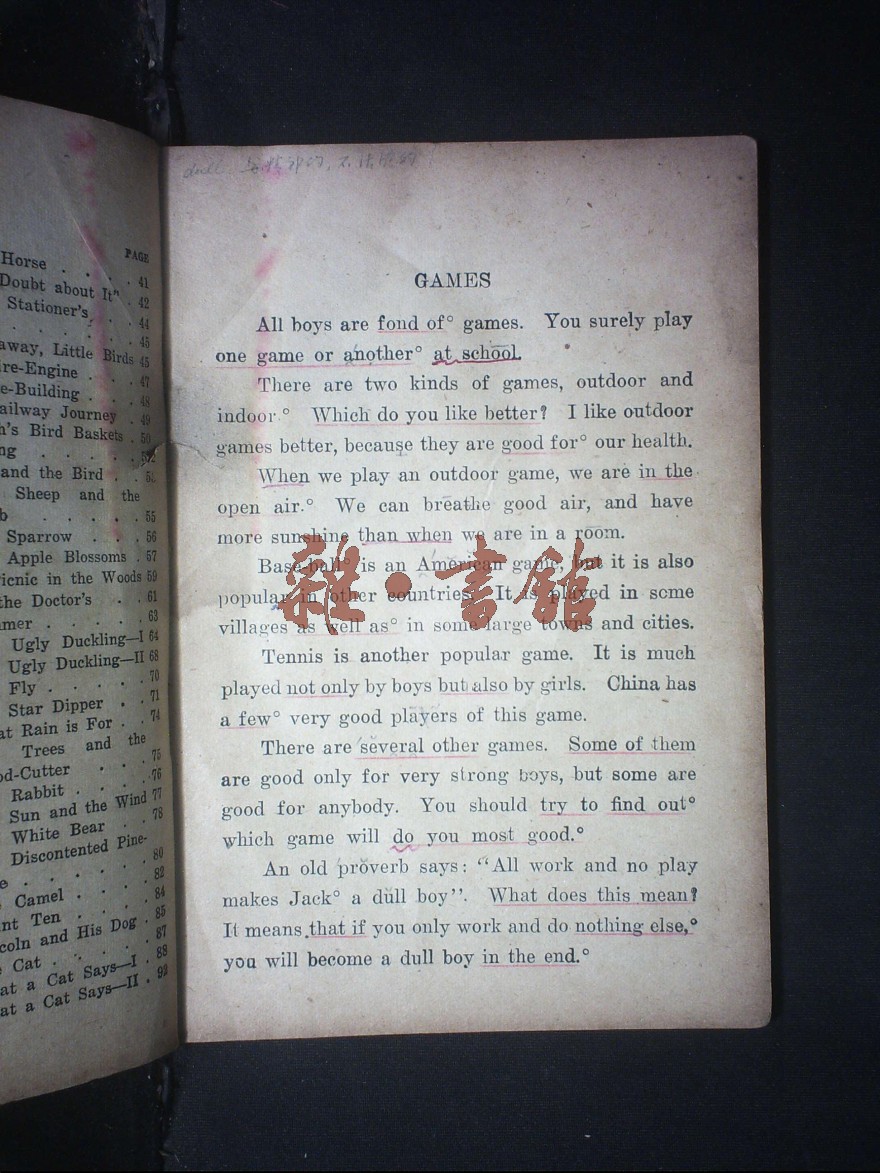 PAGE
Horse . . . . 41
Doubt about It" . 42
Stationer's . 44
. . . . . 45
away, Little Birds 45
re-Engine . . . 47
e-Building . . . 48
ailway Journey . 49
h's Bird Baskets . 50
ng . . . . .
and the Bird . .
Sheep and the
b . . . . . 55
Sparrow . . . 56
Apple Blossoms . 57
icnic in the Woods 59
the Doctor's . . 61
mer . . . . . 63
Ugly Duckling—I 64
Ugly Duckling—II 68
Fly . . . . . 70
Star Dipper . . 71
at Rain is For . . 74
Trees and the
od-Cutter . . . 75
Rabbit . . . . 76
Sun and the Wind 77
White Bear . . 78
Discontented Pine-
e . . . . . . 80
Camel . . . . 82
nt Ten . . . . 84
coln and His Dog . 85
Cat . . . . . 87
at a Cat Says—I . 88
at a Cat Says—II . 92
dull
GAMES
All boys are fond of° games. You surely play
one game or another° at school.
There are two kinds of games, outdoor and
indoor.° Which do you like better? I like outdoor
games better, because they are good for° our health.
When we play an outdoor game, we are in the
open air.° We can breathe good air, and have
more sunshine than when we are in a room.
Base-ball° is an American game, but it is also
popular in other countries. It is played in some
villages as well as° in some large towns and cities.
Tennis is another popular game. It is much
played not only by boys but also by girls. China has
a few° very good players of this game.
There are several other games. Some of them
are good only for very strong boys, but some are
good for anybody. You should try to find out°
which game will do you most good.°
An old proverb says: "All work and no play
makes Jack° a dull boy". What does this mean?
It means that if you only work and do nothing else,°
you will become a dull boy in the end.°
雜·書館